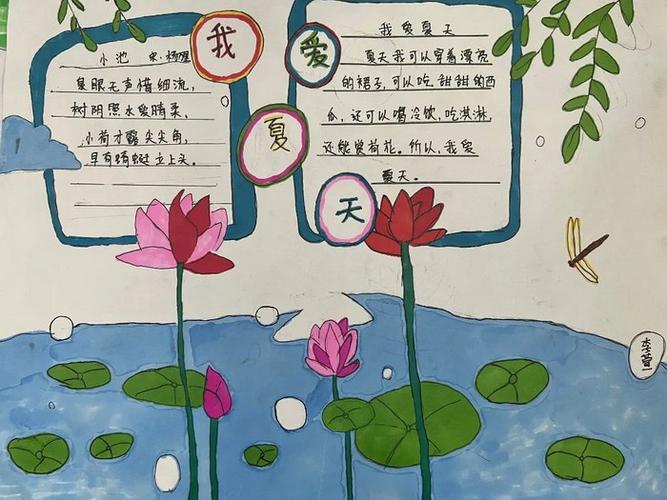 我
爱
夏
天
小池 宋·杨
泉眼无声惜细流,
树阴照水爱晴柔,
小荷才露尖尖角,
早有蜻蜓立上头。
我爱夏天
夏天我可以穿着漂亮
的裙子,可以吃甜甜的西
瓜,还可以喝冷饮,吃淇淋,
还能赏荷花。所以,我爱
夏天。
李萱